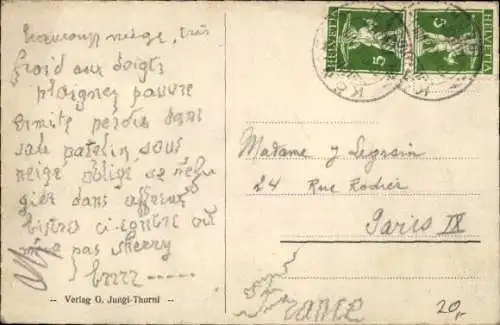 Beaucoup neige, très
froid aux doigts
plaignez pauvre
ermite perdu dans
sale patelin, sous
neige oblige se réfu
gier dans affreux
bistro ci-contre où
pas sherry
brrrr -----
-- Verlag G. Jungi-Thomi --
HELVETIA 5
HELVETIA 5
Madame J Legrain
24 Rue Rodier
Paris IX
20,-